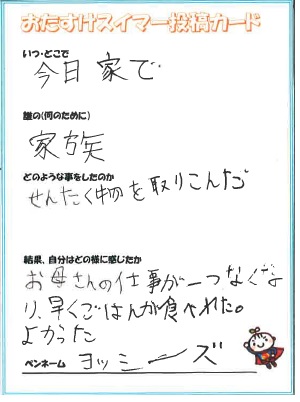 おたすけスイマー投稿カード
いつ・どこで
今日 家で
誰の(何のために)
家族
どのような事をしたのか
せんたく物を取りこんだ
結果、自分はどの様に感じたか
お母さんの仕事が一つなくな
り、早くごはんが食べれた。
よかった
ペンネーム ヨッシーズ